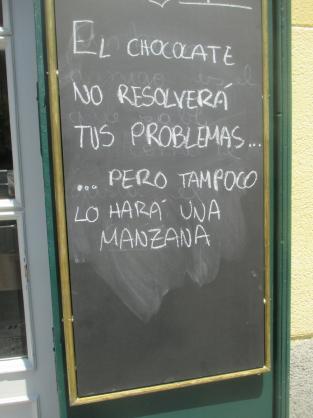 EL CHOCOLATE
NO RESOLVERÁ
TUS PROBLEMAS...
...PERO TAMPOCO
LO HARÁ UNA
MANZANA